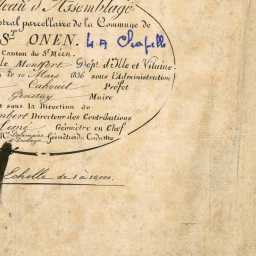 leau d'Assemblage
stral parcellaire de la Commune de
St. ONEN. LA Chapelle
Canton de St. Méen.
de Montfort Dépt. d'Ille et Vilaine
le 10 Mars 1836 sous l'Administration
Cahouet Préfet
Maire
t sous la Direction de
mbert Directeur des Contributions
Géomètre en Chef
Géomètre du Cadastre
Echelle de 1 à